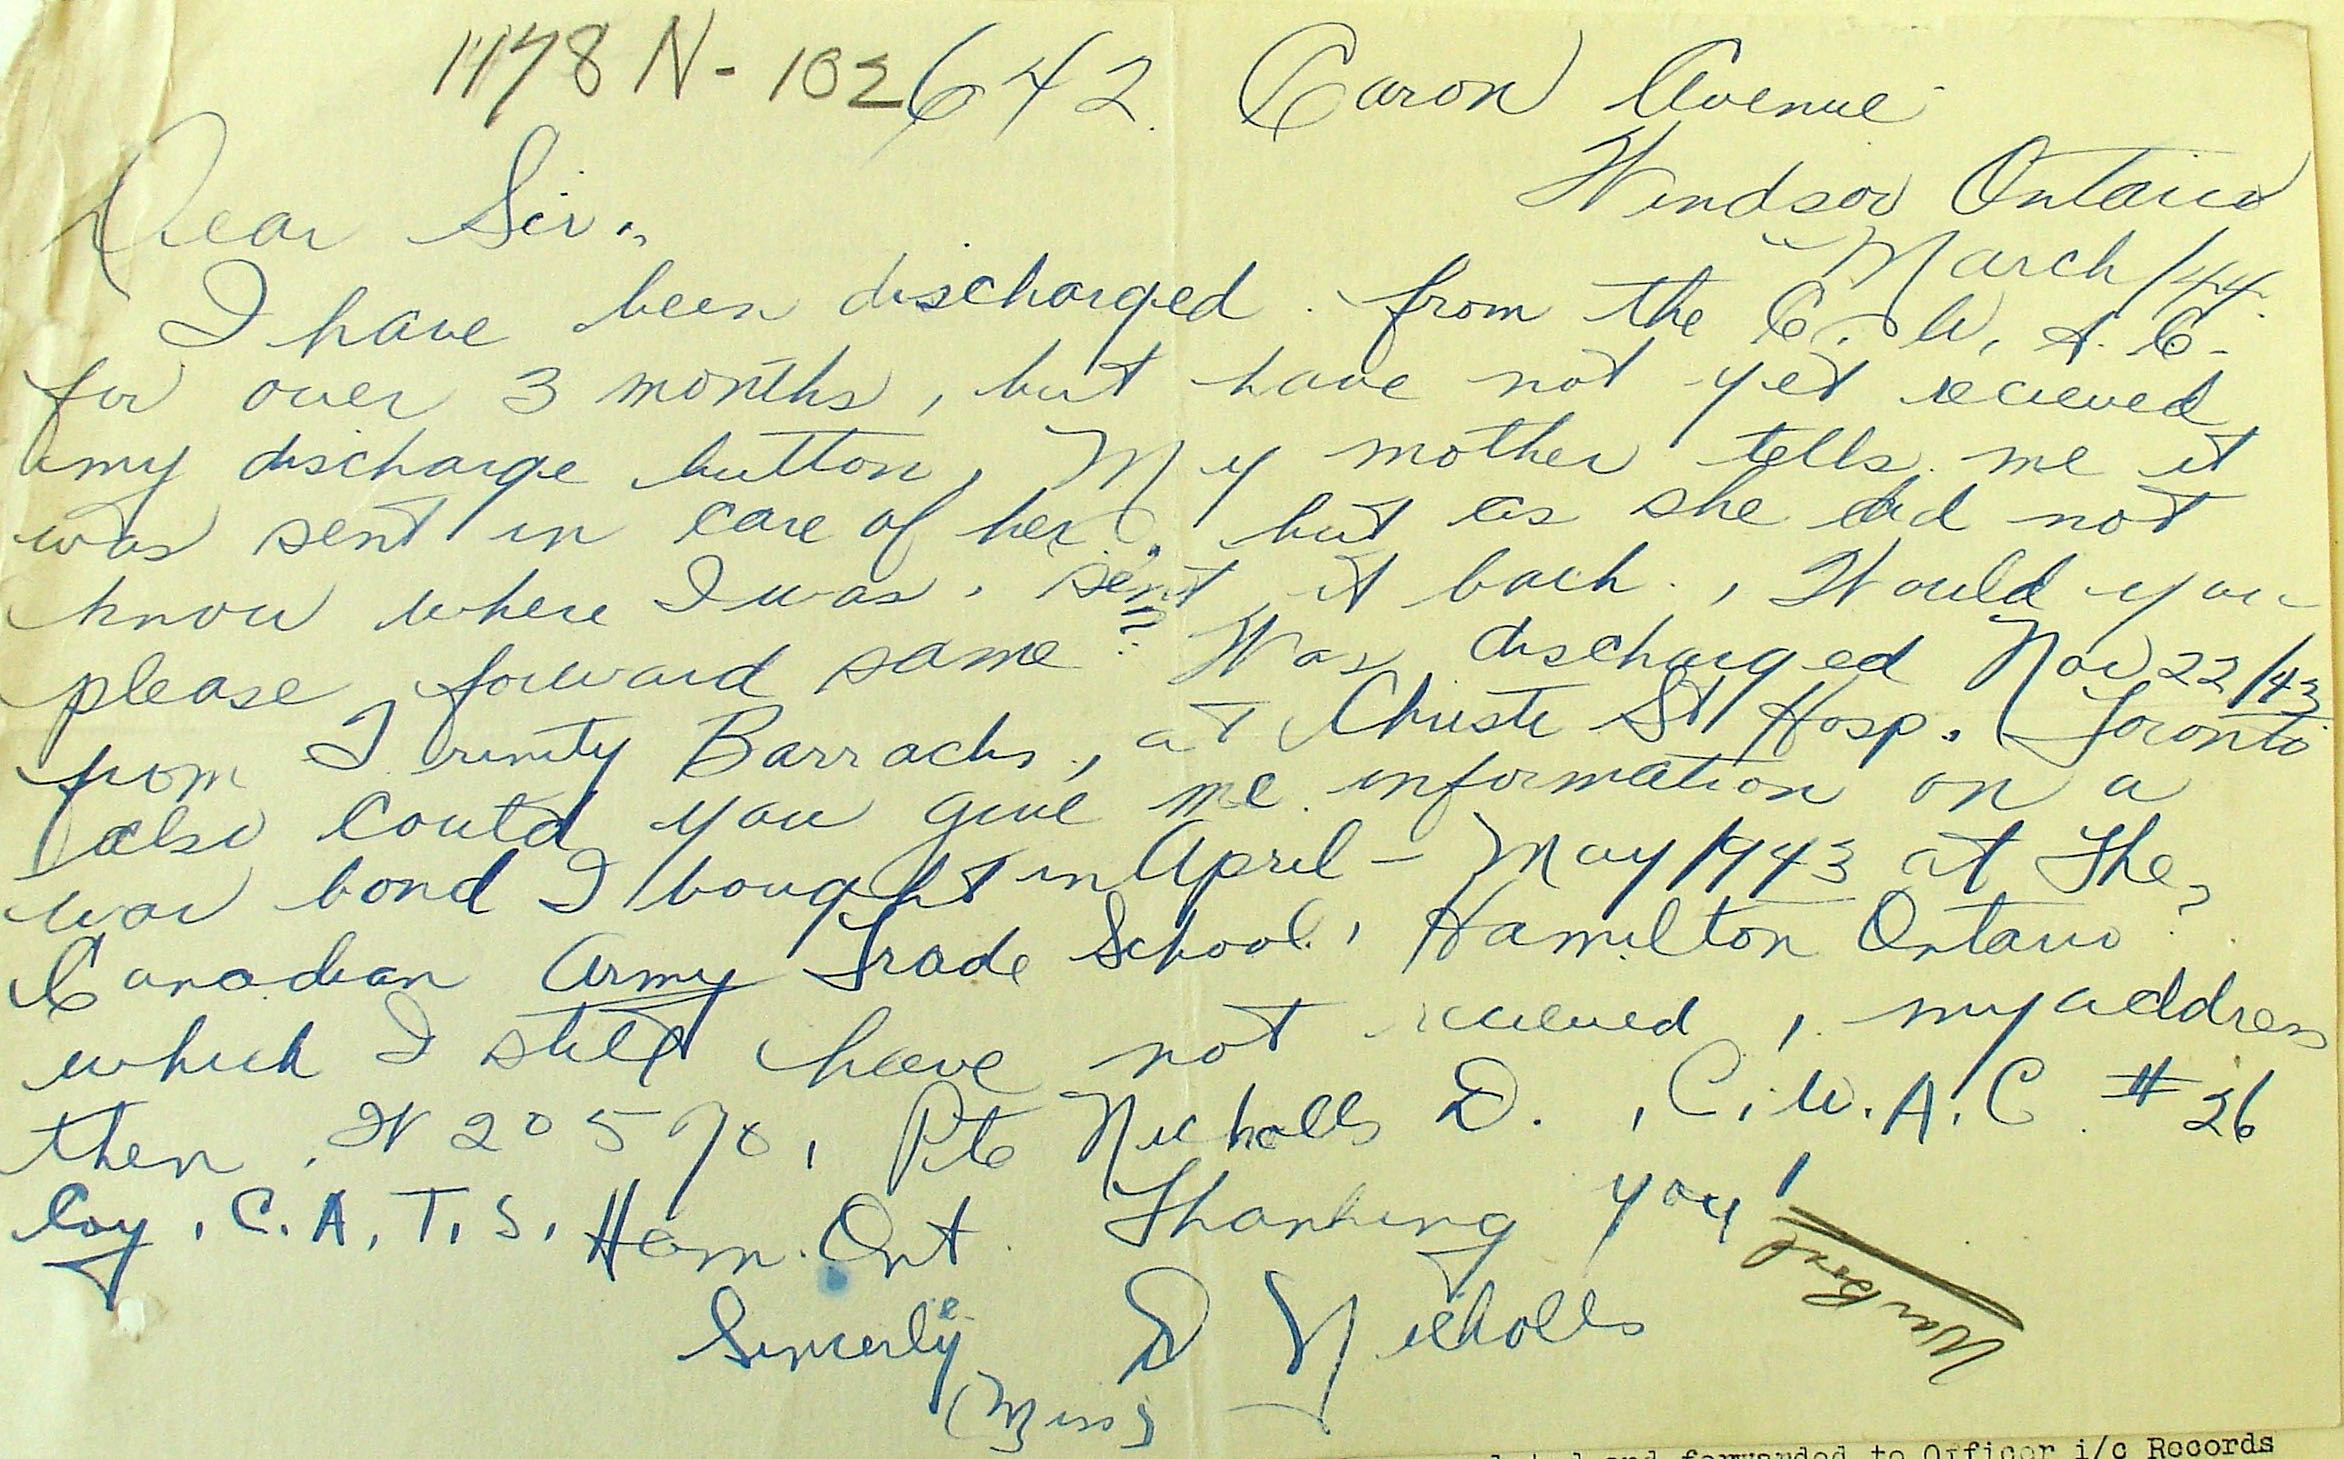 1178 N-102
642. Caron Avenue
Windsor Ontario
March/44.
Dear Sir.,
I have been discharged from the C. W. A. C.
for over 3 months, but have not yet recieved
my discharge button, My mother tells me it
was sent in care of her, but as she did not
know where I was, sent it back., Would you
please forward same? Was discharged Nov 22/43
from Trinity Barracks, at Christe St Hosp. Toronto
also could you give me information on a
war bond I bought in April - May 1943 at The,
Canadian Army Trade School, Hamilton Ontario
which I still have not recieved, my address
then, W 20570, Pte Nicholls D., C.W.A.C. #26
Coy, C.A.T.S. Ham. Ont. Thanking you!
Sincerely
D Nicholls
(Miss)
War Bond
and forwarded to Officer i/c Records